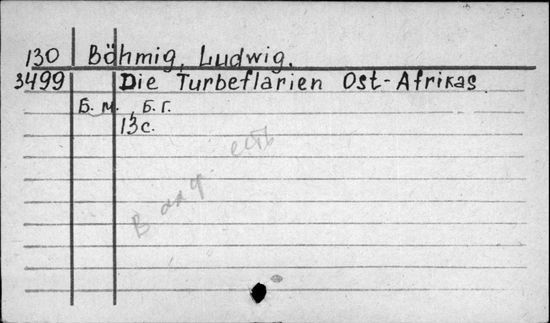 130 Böhmig, Ludwig.
3499 Die Turbeflarien Ost-Afrikas
Б. м., Б. Г.
13 с.
В алф есть